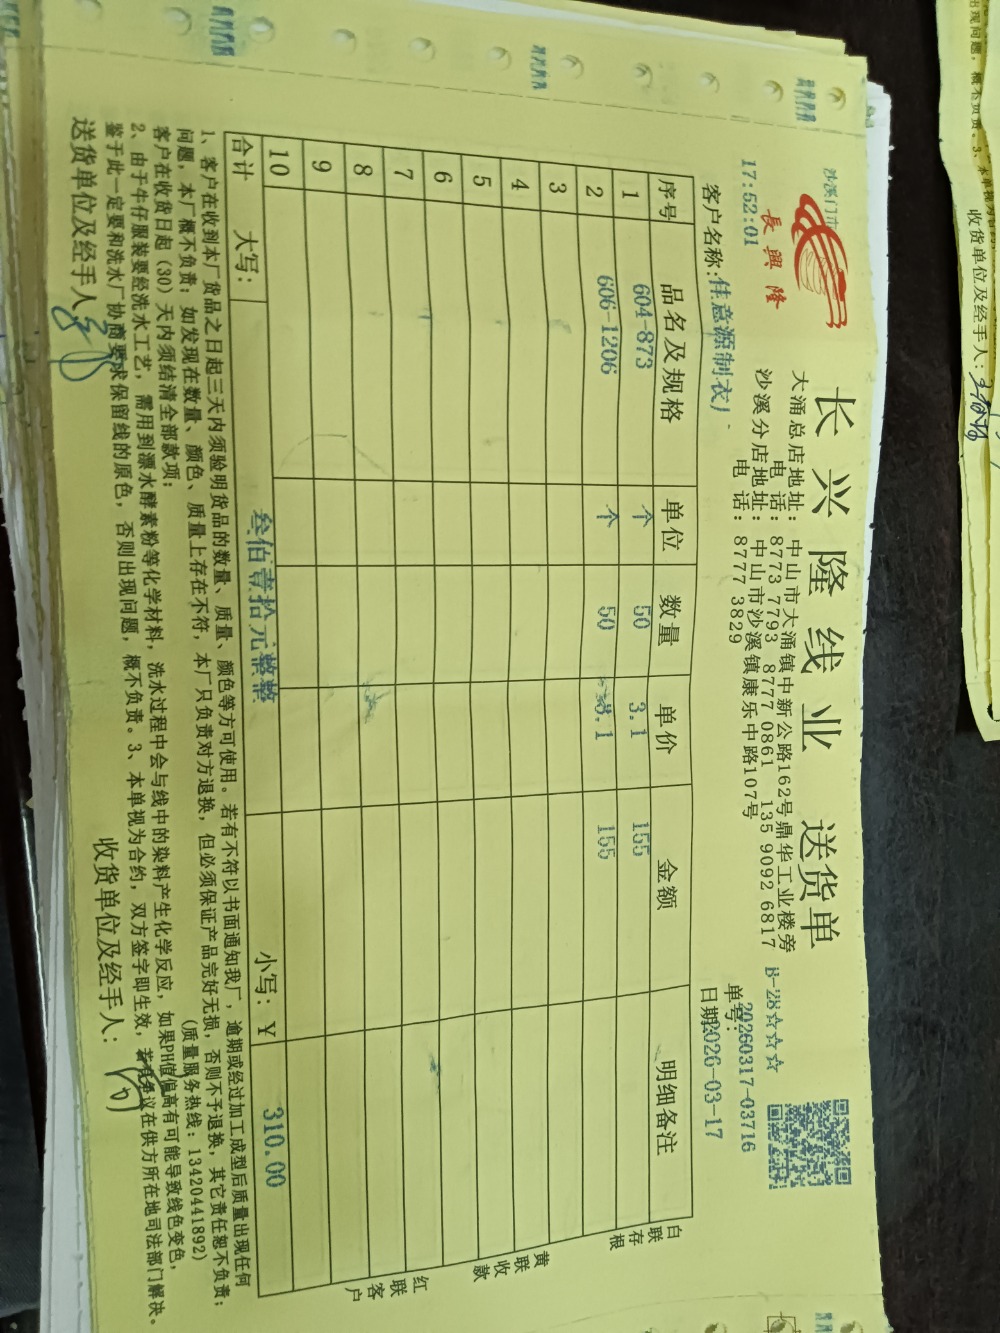 沙溪门市
長興隆
长兴隆线业 送货单
大涌总店地址：中山市大涌镇中新公路162号鼎华工业楼旁
电 话：8773 7793 8777 0861 135 9092 6817
沙溪分店地址：中山市沙溪镇康乐中路107号
电 话：8777 3829
B-28☆☆☆
17:52:01
单号：20260317-03716
客户名称：佳意源制衣厂
日期：2026-03-17
序号 品名及规格 单位 数量 单价 金额 明细备注
1 604-873 个 50 3.1 155
2 606-1206 个 50 3.1 155
3
4
5
6
7
8
9
10
合计 大写： 叁佰壹拾元整整 小写：¥ 310.00
白联存根
黄联收款
红联客户
1、客户在收到本厂货品之日起三天内须验明货品的数量、质量、颜色等方可使用。若有不符以书面通知我厂，逾期或经过加工成型后质量出现任何
问题，本厂概不负责；如发现在数量、颜色、质量上存在不符，本厂只负责对方退换，但必须保证产品完好无损，否则不予退换，其它责任恕不负责；
客户在收货日起（30）天内须结清全部款项； （质量服务热线：13420441892）
2、由于牛仔服装要经洗水工艺，需用到漂水酵素粉等化学材料，洗水过程中会与线中的染料产生化学反应，如果PH值偏高有可能导致线色变色，
鉴于此一定要和洗水厂协商要求保留线的原色，否则出现问题，概不负责。3、本单视为合约，双方签字即生效，若有争议在供方所在地司法部门解决。
送货单位及经手人：
收货单位及经手人：
出现问题，概不负责。3、本单视为
收货单位及经手人：